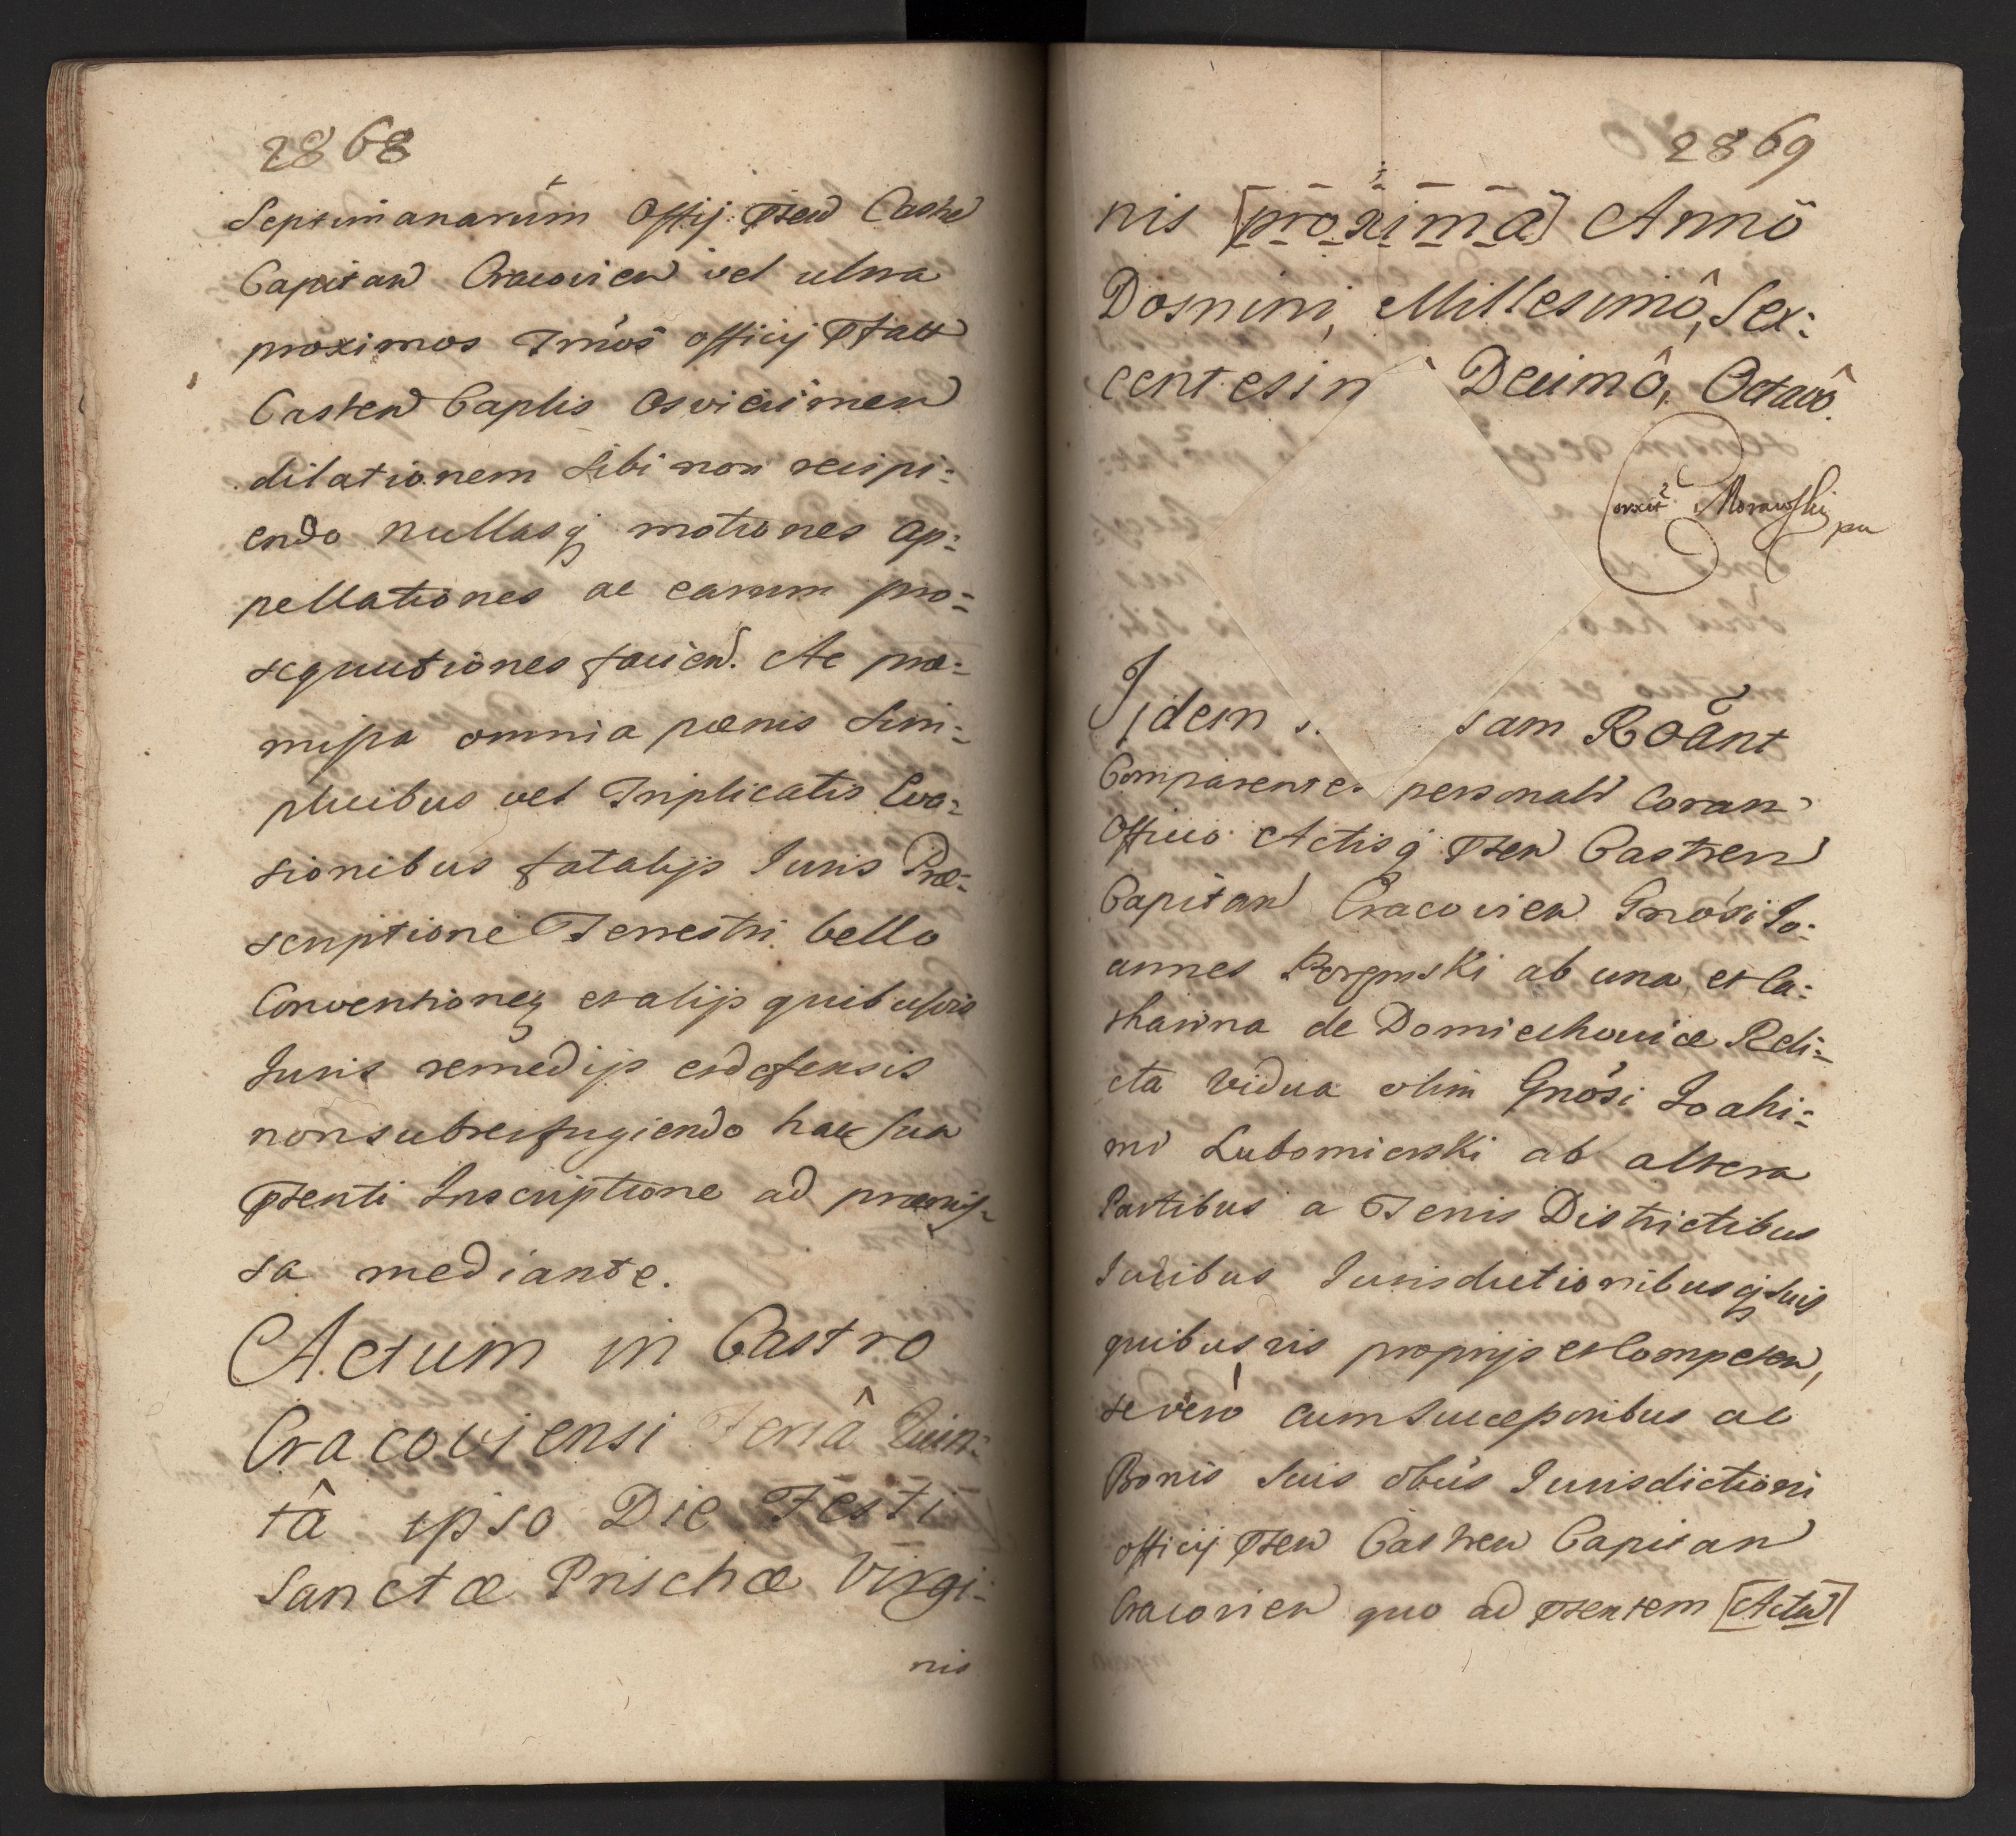 2868
Septimanarum Offij. Pten Castre
Capitan Cracovien vel ultra
proximos Trmos officij Ptatt
Casten Caplis Osviecimen
dilationem sibi non recipi:
endo nullasq motiones ap:
pellationes ac earum pro:
sequutiones facien. Ac præ:
mißa omnia pœnis Sim:
plicibus vel Triplicatis Eva:
sionibus fatalijs Iuris Præ:
scriptione Terrestri bello
Conventioneq et alijs quibusvis
Iuris remedijs et defensis
non subterfugiendo hac Sua
Ptenti Inscriptione ad præmiß:
sa mediante.
Actum in Castro
Cracoviensi Feriâ Quin:
tâ ipso Die Festi
Sanctæ Prischæ Virgi:
nis
2869
nis [proxima] Annô
Domini, Millesimô, Sex:
centesim Decimô, Octavô.
Morawski
Ijdem sam Roânt
Comparentes personalr Coram
Officio Actisq Pten Castren
Capitan Cracovien Gnosi Jo:
annes ab una et Ca:
tharina de Domiechovice Reli:
cta Vidua olim Gnosi Joahi:
mi Lubomierski ab altera
Partibus a Terris Districtibus
Judibus Iurisdictionibusq Suis
quibusvis proprijs et Competen,
se vero cum Succeßoribus ac
Bonis Suis obus Iurisdictioni
officij Pten Castren Capitan
Cracovien quo ad Ptentem [Actu]